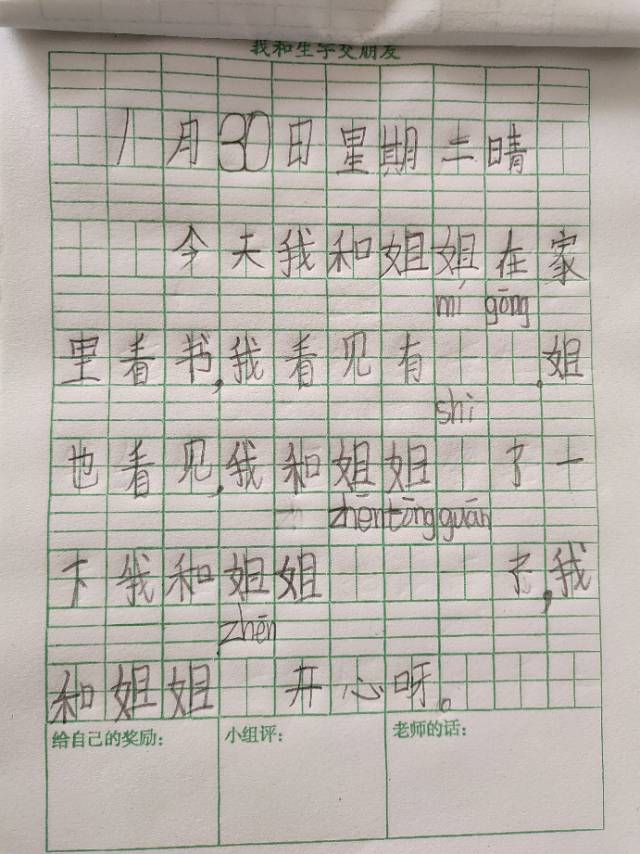 我和生字交朋友
1月30日星期二晴
今天我和姐姐在家
mí gōng
里看书,我看见有 .姐
shì
也看见,我和姐姐 了一
zhēn tōng guān
下我和姐姐 了,我
zhēn
和姐姐 开心呀。
给自己的奖励: 小组评: 老师的话: